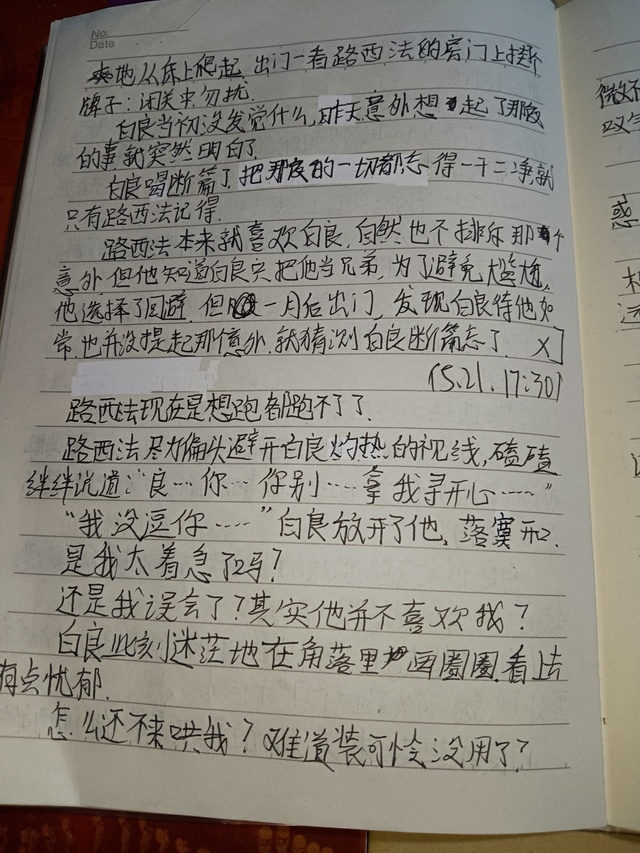 No.
Date
地从床上爬起,出门一看路西法的房门上挂坏
牌子:闭关中勿扰.
白良当初没发觉什么,昨天意外想起了那夜
的事就突然明白了.
白良喝断篇了把那夜的一切都忘得一干二净就
只有路西法记得.
路西法本来就喜欢白良,自然也不排斥那个
意外但他知道白良只把他当兄弟,为了避免尴尬,
他选择了回避.但一月后出门,发现白良待他如
常,也并没提起那个意外.就猜测白良断篇忘了. X]
(5.21.17:30)
路西法现在是想跑都跑不了了.
路西法尽力偏头避开白良灼热的视线,磕磕
绊绊说道:"良……你……你别……拿我寻开心……"
"我没逗你……"白良放开了他,落寞开口.
是我太着急了吗?
还是我误会了?其实他并不喜欢我?
白良此刻迷茫地在角落里画圈圈.看上去
有点忧郁.
怎么还不来哄我?难道装可怜没用了?
微
叹气
惑